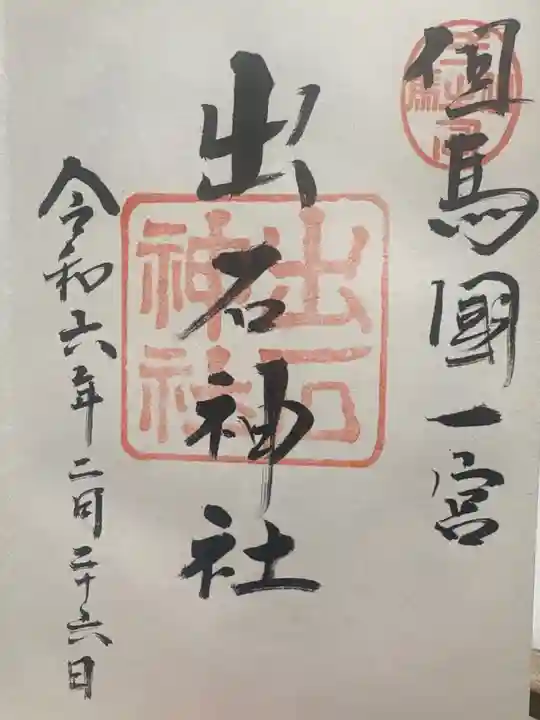 但馬國一宮
出石神社
出石神社
令和六年二月二十六日